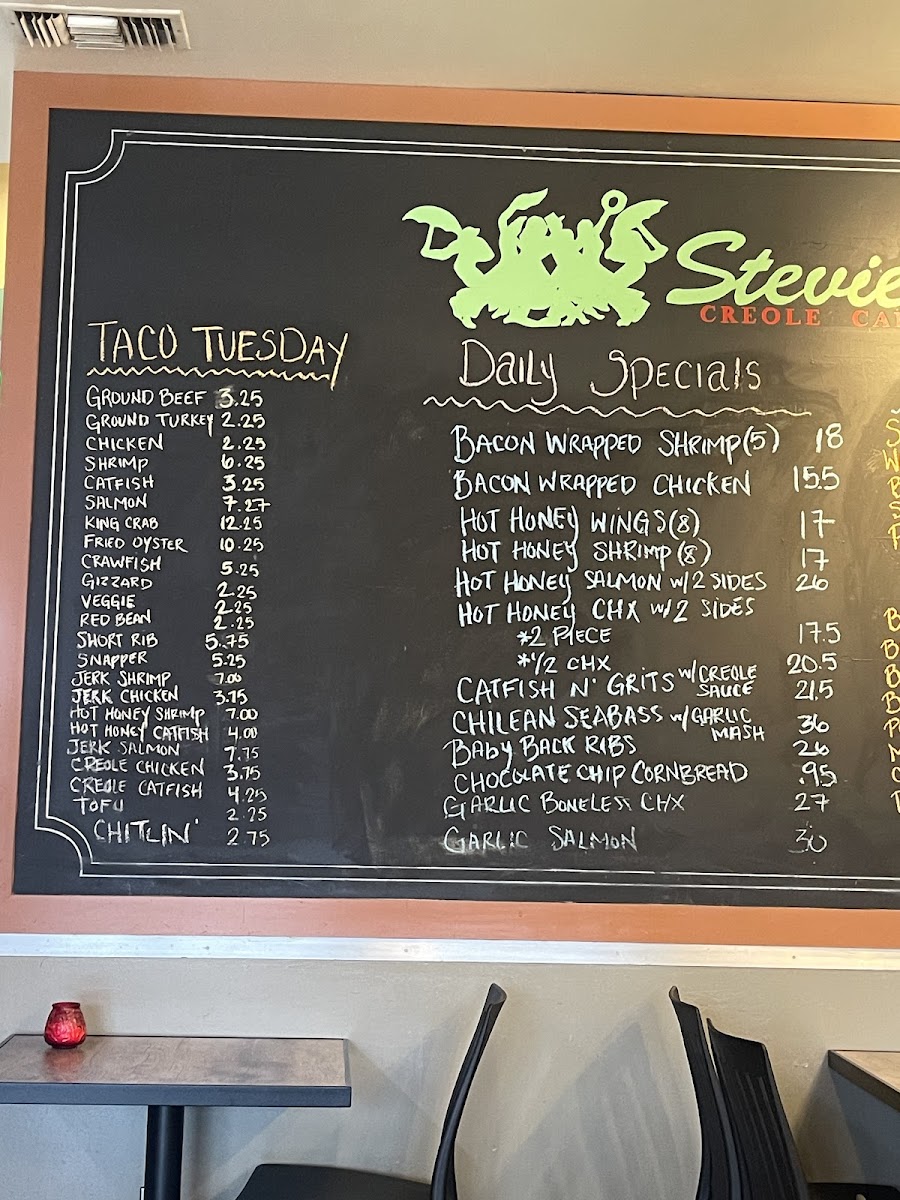 Stevie
CREOLE CA
TACO TUESDAY
GROUND BEEF 3.25
GROUND TURKEY 2.25
CHICKEN 2.25
SHRIMP 6.25
CATFISH 3.25
SALMON 7.27
KING CRAB 12.25
FRIED OYSTER 10.25
CRAWFISH 5.25
GIZZARD 2.25
VEGGIE 2.25
RED BEAN 2.25
SHORT RIB 5.75
SNAPPER 5.25
JERK SHRIMP 7.00
JERK CHICKEN 3.75
HOT HONEY SHRIMP 7.00
HOT HONEY CATFISH 4.00
JERK SALMON 7.75
CREOLE CHICKEN 3.75
CREOLE CATFISH 4.25
TOFU 2.25
CHITLIN' 2.75
Daily Specials
BACON WRAPPED SHRIMP(5) 18
BACON WRAPPED CHICKEN 15.5
HOT HONEY WINGS(8) 17
HOT HONEY SHRIMP(8) 17
HOT HONEY SALMON W/2 SIDES 26
HOT HONEY CHX W/2 SIDES
*2 PIECE 17.5
*1/2 CHX 20.5
CATFISH N' GRITS W/CREOLE SAUCE 21.5
CHILEAN SEABASS W/GARLIC MASH 36
BABY BACK RIBS 26
CHOCOLATE CHIP CORNBREAD .95
GARLIC BONELESS CHX 27
GARLIC SALMON 30